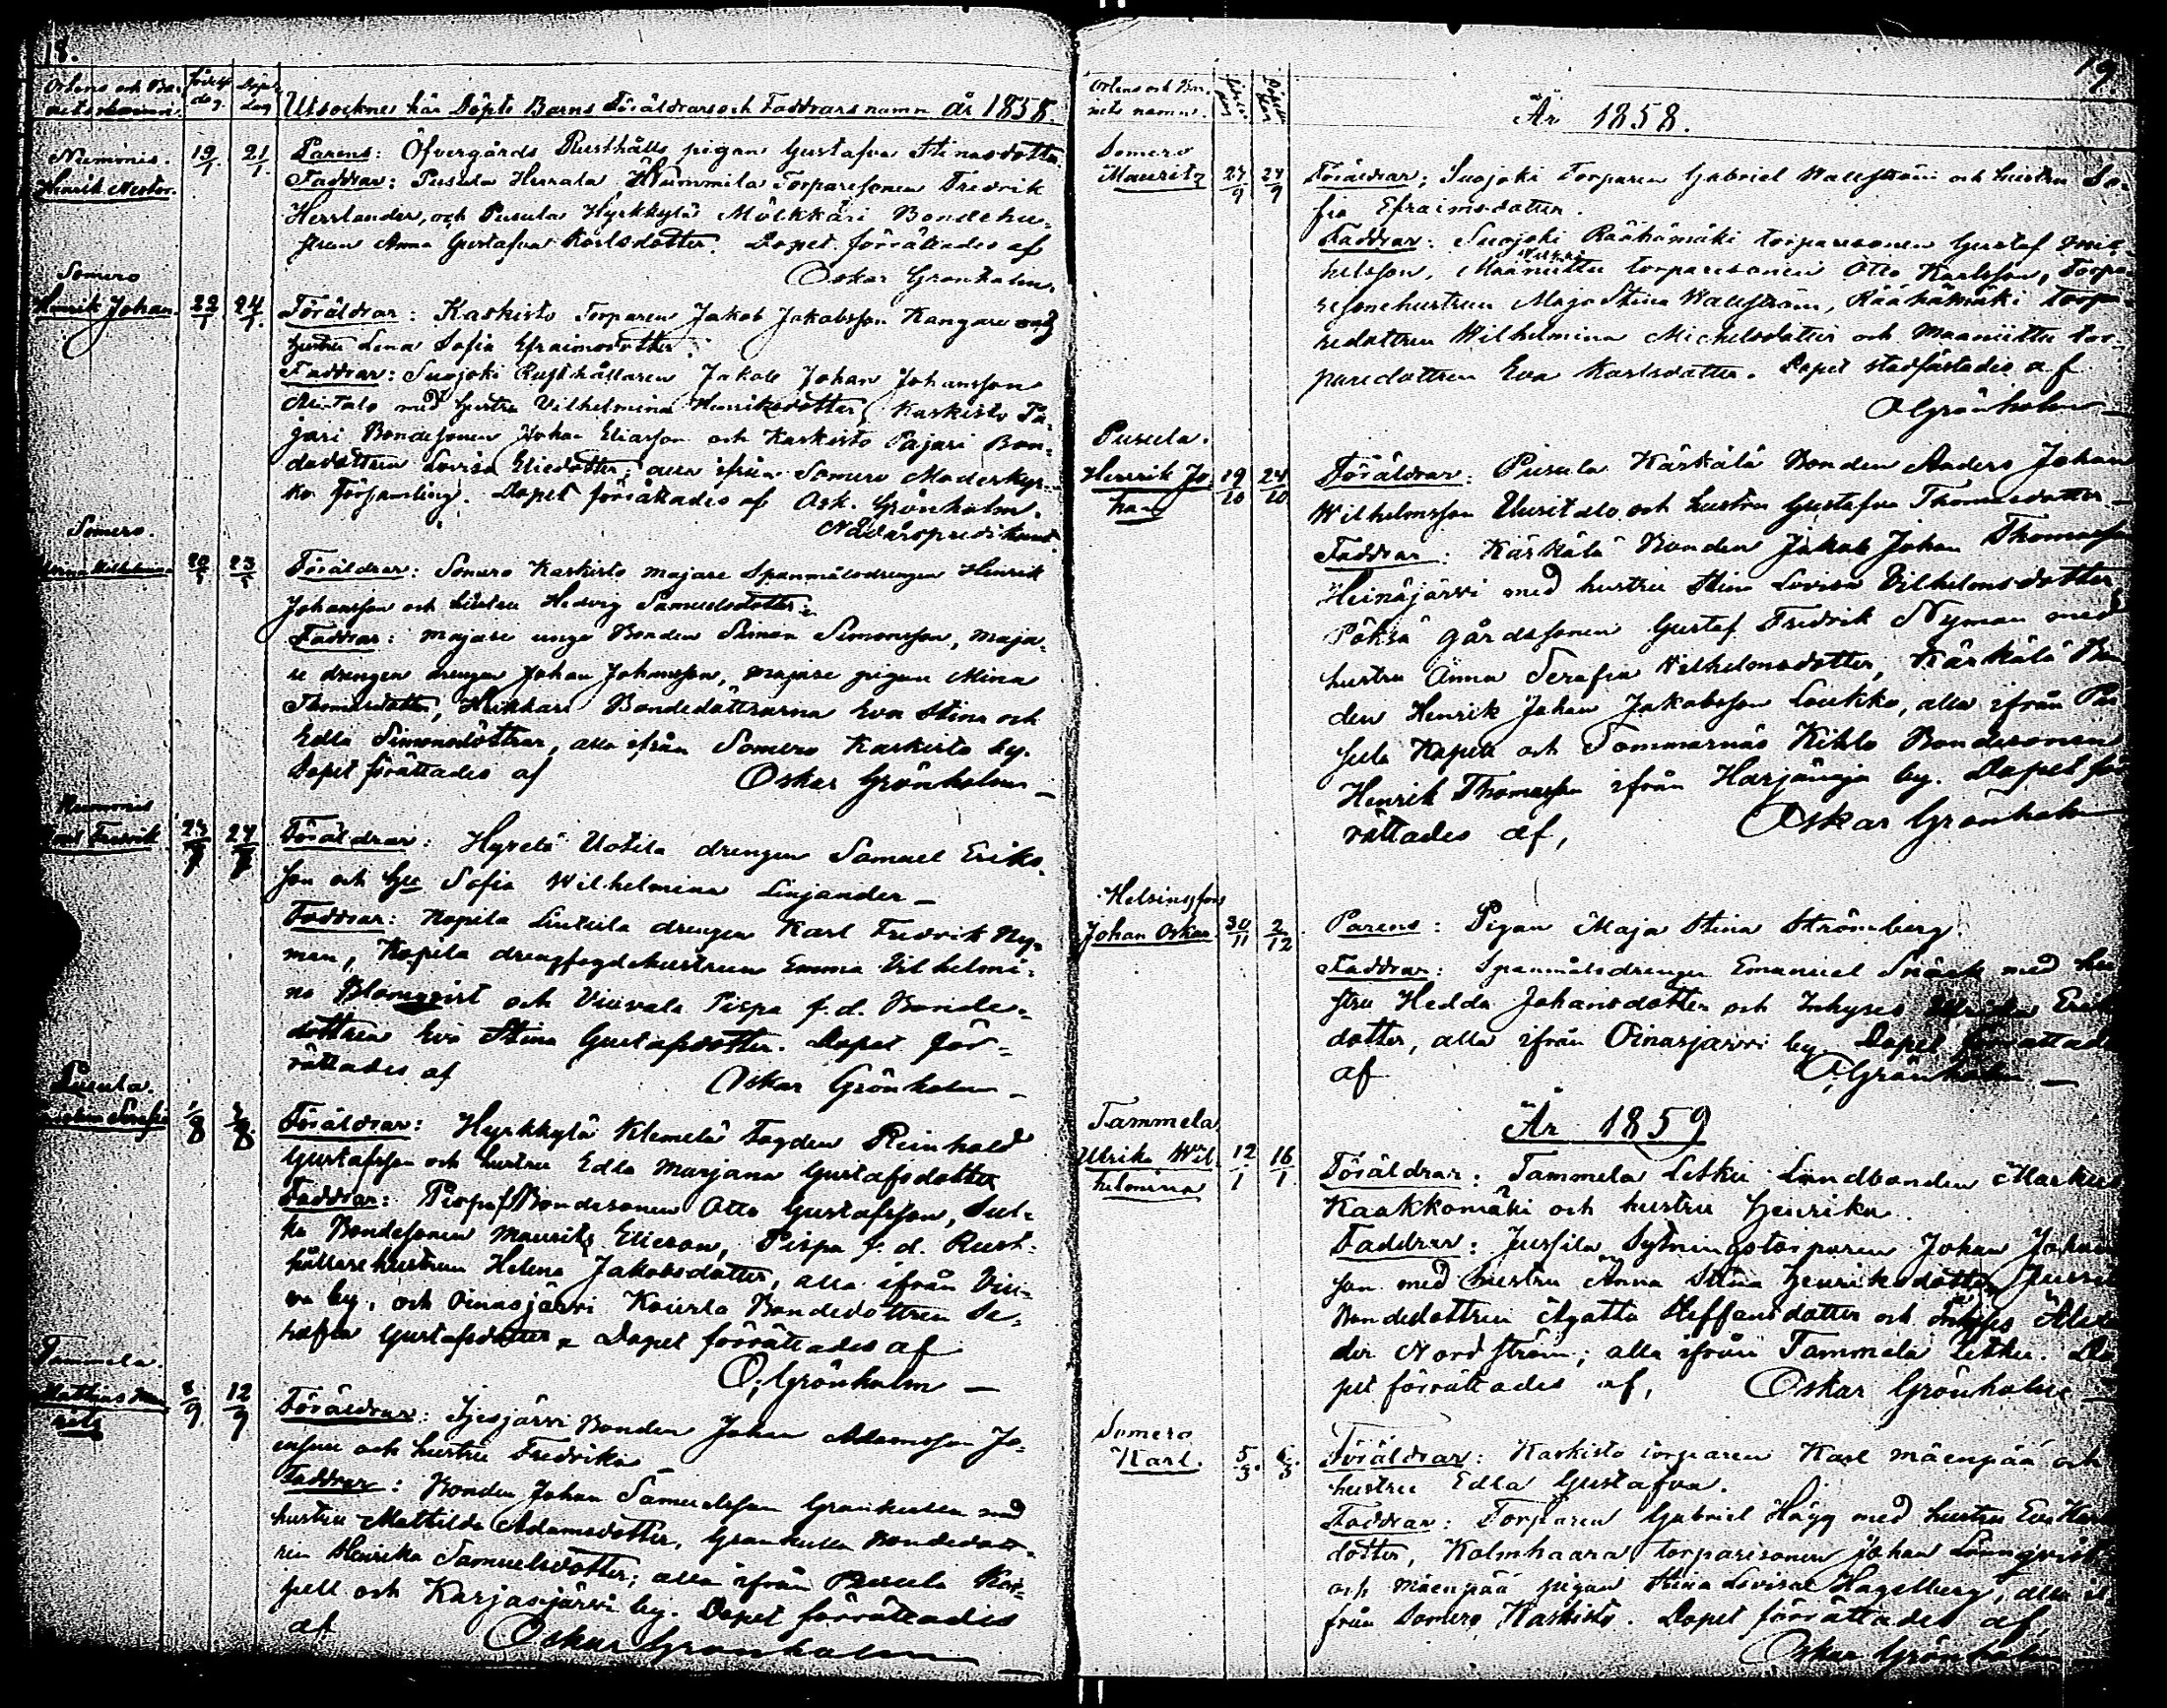 18.
Ortens och Bar-
nets namn.
Födelse
dag.
Döpelse
dag
Utsocknes här Döpte Barns Föräldrars och Faddrars namn År 1858.
Nummis.
Henrik Nestor.
19/1.
21/1.
Parens: Öfvergårds Rusthålls pigan Gustafva Stinasdotter.
Faddrar: Pusula Herrala Torparesonen Fredrik
Herrlander, och Pusula Hyrkkylä Mölkkäri Bondehu-
strun Anna Gustafva Karlsdotter. Dopet förrättades af
Oskar Grönholm.
Somero
Henrik Johan.
22/1
24/1.
Föräldrar: Kaskisto Torparen Jakob Jakobsson Kangare och
hustru Lena Sofia Efraimsdotter.
Faddrar: Suojoki Rusthållaren Jakob Johan Johansson
med hustru Vilhelmina Henriksdotter, Kaskisto Pa-
jari Bondesonen Johan Eliasson och Kaskisto Pajari Bon-
dedottren Lovisa Eliedotter; alla ifrån Somero Moderkyr-
ko församling. Dopet förrättades af Osk. Grönholm.
Nådårspredikant.
Somero.
Wilhelmina
20/5
23/5
Föräldrar: Somero Kaskisto Majare Spanmålsdrengen Henrik
Johansson och hustru Hedvig Samuelsdotter.
Faddrar: Majare unge Bonden Simon Simonsson, Maja-
re drengen drengen Johan Johansson, Majare pigan Mina
Thomasdotter, Bondedöttrarna Eva Stina och
Edla Simonsdöttrar, alla ifrån Somero Kaskisto by.
Dopet förrättades af Oskar Grönholm —
Nummis
Fredrik
25/7
27/7
Föräldrar: Hyrelä Uotila drengen Samuel Eriks-
son och hu Sofia Wilhelmina Linjander —
Faddrar: Kopila drengen Karl Fredrik Ny-
man, Kopila drengfogdehustrun Emma Vilhelmi-
na Blomqvist och Viuvala Pispa f.d. Bonde-
dottren Eva Stina Gustafsdotter. Dopet för-
rättades af Oskar Grönholm —
Pusula.
1/8
/8.
Föräldrar: Hyrkkylä Klemelä Fogden Reinhold
Gustafsson och hustru Edla Marjana Gustafsdotter
Faddrar: Pispa Bondesonen Otto Gustafsson, Sul-
ka Bondesonen Maurits Elieson, Pispa f.d. Rust-
hållarehustrun Helena Jakobsdotter, alla ifrån Viu-
va by, och Oinasjärvi Koursla Bondedottren Se-
rafia Gustafsdotter. Dopet förrättades af
O. Grönholm —
Tammela.
Mathias Mau
rits
8/9.
12/9
Föräldrar: Bonden Johan Adamsson Jo-
ensuu och hustru Fredrika
Faddrar: Bonden Johan Samuelsson Grankulla med
hustru Mathilda Adamsdotter, Grankulla Bondedott-
ren Henrika Samuelsdotter; alla ifrån Pusula Ka-
pell och Karjasjärvi by. Dopet förrättades
af Oskar Grönholm —
19.
Ortens och Bar-
nets namn.
År 1858.
Somero
Maurits
24/9
27/9
Föräldrar: Suojoki Torparen Gabriel Wallström och hustru So-
fia Efraimsdotter.
Faddrar: Suojoki Räähämäki torparesonen Gustaf Mic-
helsson, Maaniittu torparesonen Otto Karlsson, Torpa-
resonehustrun Maja Stina Wallström, Räähämäki torpa-
redottren Wilhelmina Michelsdotter och Maaniittu tor-
paredottren Eva Karlsdotter. Dopet stadfästades af
O Grönholm —
Pusula.
Henrik Jo
han
19/10
24/10
Föräldrar: Pusula Kärkälä Bonden Anders Johan
Wilhelmsson Uusitalo och hustru Gustafva Thomasdotter —
Faddrar: Kärkälä Bonden Jakob Johan Thomasson
Heinäjärvi med hustru Stina Lovisa Vilhelmsdotter
Pöksä gårdssonen Gustaf Fredrik Nyman med
hustru Anna Serafia Wilhelmsdotter, Kärkälä Bon
den Henrik Johan Jakobsson Loukko, alla ifrån Pu
sula Kapell och Sommarnäs Kihlo Bondesonen
Henrik Thomasson ifrån Harjänoja by. Dopet för
rättades af, Oskar Grönholm
Helsingfors
Johan Oskar
30/11
2/12.
Parens: Pigan Maja Stina Strömberg
Faddrar: Spanmålsdrengen Emanuel med hu
stru Hedda Johansdotter och Inhyses Ulrika Eriks
dotter, alla ifrån Oinasjärvi by. Dopet förrättade
af O. Grönholm —
År 1859
Tammela
Ulrika Wil
helmina
12/1
16/1.
Föräldrar: Tammela Letku Landbonden Markus
Kaakkomäki och hustru Henrika.
Faddrar: Jussila Sytningstorparen Johan Johans
son med hustru Anna Stina Henriksdotter, Jussila
Bondedottren Agatta Steffansdotter och Inhyses Alexan
der Nordström; alla ifrån Tammela Letku. Do
pet förrättades af, Oskar Grönholm —
Somero
Karl.
5/3.
6/3.
Föräldrar: Kaskisto torparen Karl Mäenpää och
hustru Edla Gustafva.
Faddrar: Torparen Gabriel Hägg med hustru Eva
dotter, Kolmhaara torparesonen Johan Lönnqvist
och Mäenpää pigan Stina Lovisa Hagelberg, alla i
från Somero Kaskisto. Dopet förrättades af,
Oskar Grönholm